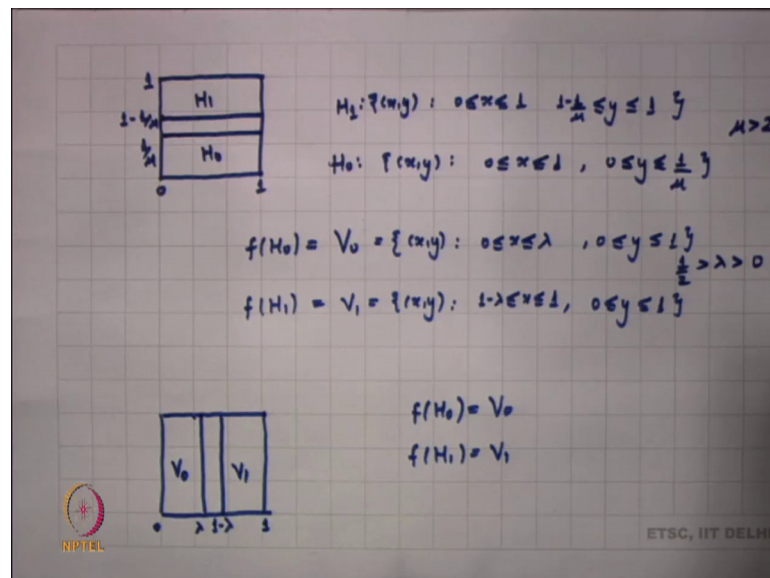 1
H₁
1 - 1/μ
1/μ
H₀
0 1
H₁: {(x,y): 0≤x≤1 1-1/μ ≤y≤ 1 }
μ>2
H₀: {(x,y): 0≤x≤1, 0≤y≤1/μ}
f(H₀) = V₀ = {(x,y): 0≤x≤λ, 0≤y≤1}
1/2 >λ>0
f(H₁) = V₁ = {(x,y): 1-λ≤x≤1, 0≤y≤1}
f(H₀)= V₀
f(H₁)= V₁
V₀ V₁
0 λ 1-λ 1
NPTEL
ETSC, IIT DELHI